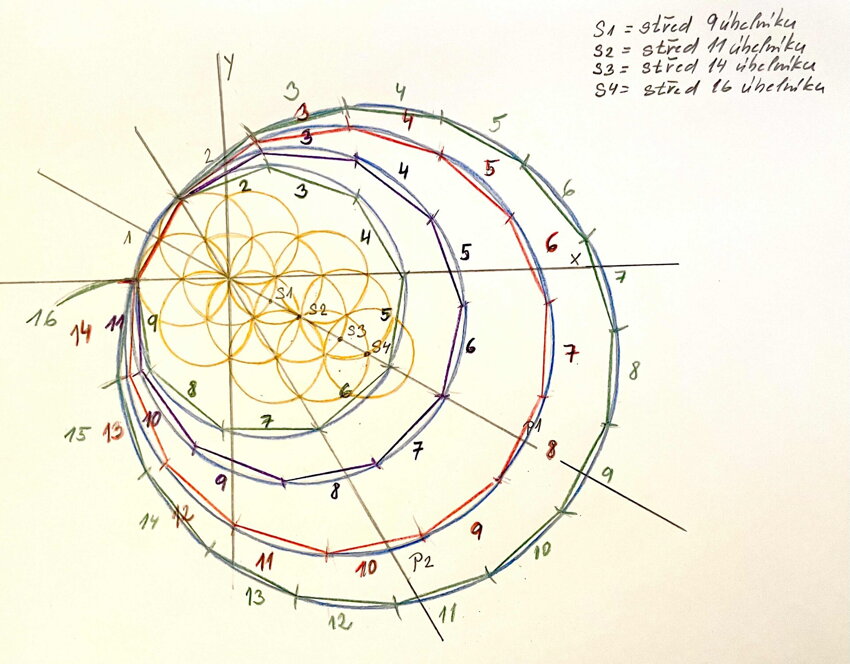 S1 = střed 9úhelníku
S2 = střed 11úhelníku
S3 = střed 14 úhelníku
S4 = střed 16 úhelníku
y
3
4
3
4
5
2
3
4
5
6
2
3
1
4
5
6
x
7
16
14
11
9
S1
S2
S3
S4
5
6
7
8
8
7
6
15
13
10
9
8
7
p1
8
9
14
12
11
10
9
p2
10
13
12
11